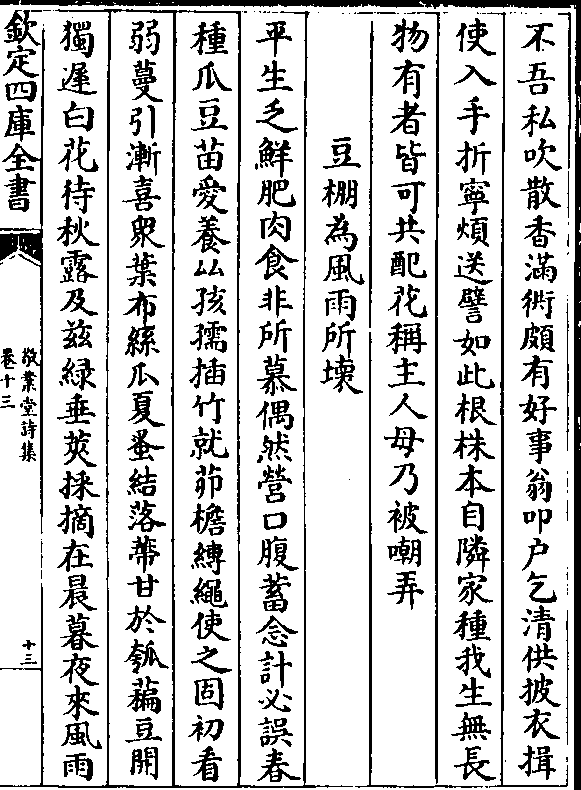 不吾私吹散香滿衖頗有好事翁叩户乞清供披衣揖
使入手折寜煩送譬如此根株本自隣家種我生無長
物有者皆可共配花稱主人毋乃被嘲弄
豆棚為風雨所壊
平生乏鮮肥肉食非所慕偶然營口腹蓄念計必誤春
種瓜豆苗愛養㕥孩孺插竹就茆檐縳繩使之固初看
弱蔓引漸喜衆葉布絲瓜夏蚤結落蔕甘於瓠藊豆開
獨遲白花待秋露及兹緑垂莢採摘在晨暮夜來風雨
欽定四庫全書
敬業堂詩集
卷十三
十三